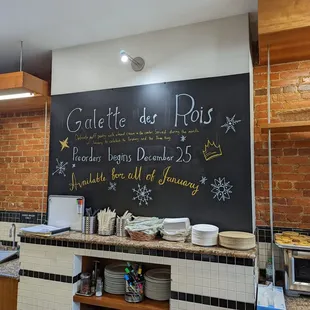 Galette des Rois
Preorders begins December 25
Available for all of January